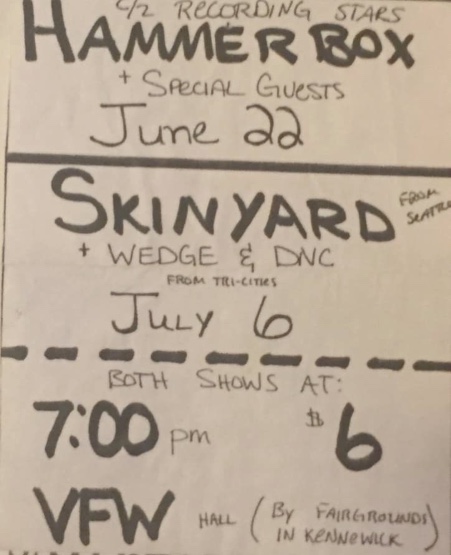 C/Z RECORDING STARS
HAMMERBOX
+ SPECIAL GUESTS
June 22
SKINYARD FROM SEATTLE
+ WEDGE & DNC
FROM TRI-CITIES
JULY 6
BOTH SHOWS AT:
7:00 pm $6
VFW HALL (By FAIRGROUNDS)
IN KENNEWICK